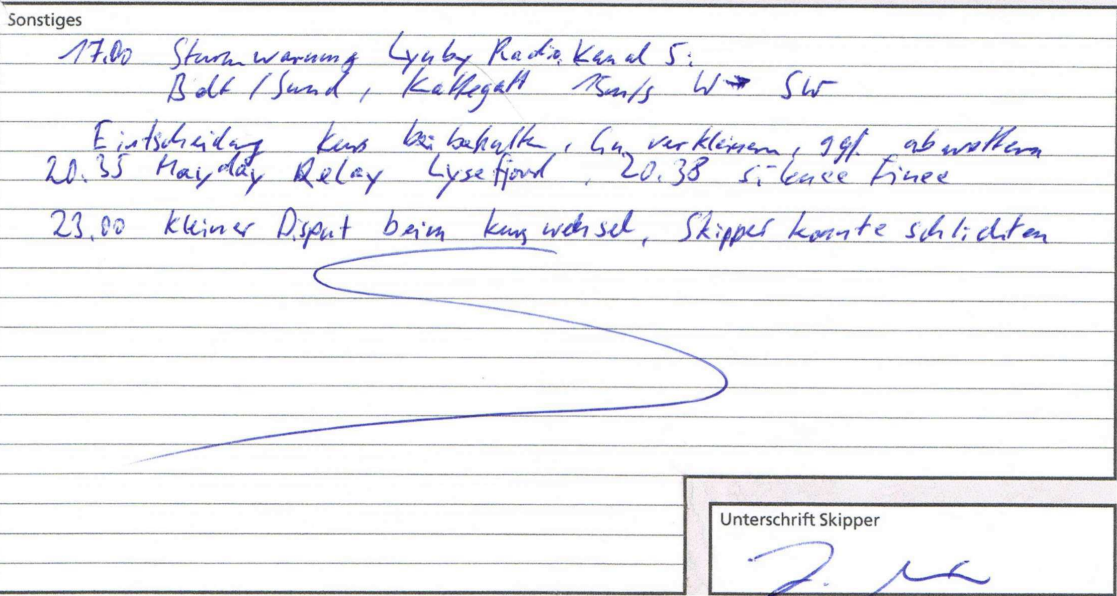 Sonstiges
17.00 Sturmwarnung Lyngby Radio Kanal 5:
Belt / Sund, Kattegatt 15m/s W → SW
Entscheidung Kurs beibehalten, verkleinern, ggf. abwettern
20.35 Mayday Relay Lysefjord, 20.38 silence finee
23.00 kleiner Disput beim kurswechsel, Skipper konnte schlichten
Unterschrift Skipper